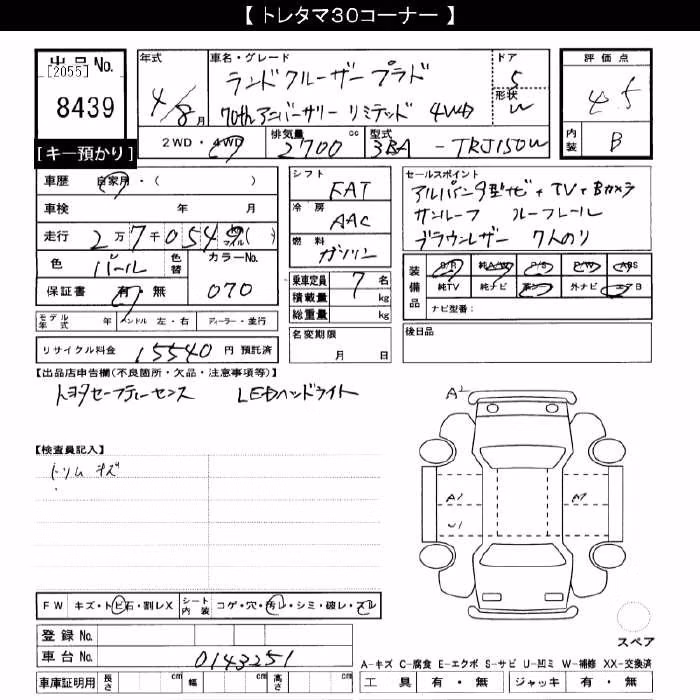 【 トレタマ30コーナー 】
出品 No.
[2055]
8439
[キー預かり]
年式
4/8月
車名・グレード
ランドクルーザー プラド
70thアニバーサリー リミテッド 4WD
ドア
5
形状
W
評価点
4.5
内装
B
2WD・4WD
排気量
2700 cc
型式
3BA - TRJ150W
車歴 自家用・( )
車検 年 月
走行 2万7千0549 ( )
色 パール 色替
カラーNo. 070
保証書 有・無
モデル年式 年 ハンドル 左・右 ディーラー・並行
リサイクル料金 15540 円 預託済
シフト
FAT
冷房
AAC
燃料
ガソリン
乗車定員 7 名
積載量 kg
総重量 kg
名変期限
月 日
セールスポイント
アルパイン9型ナビ+TV+Bカメラ
サンルーフ ルーフレール
ブラウンレザー 7人のり
装備品
S/R 純A/W P/S P/W ABS
純TV 純ナビ 革シート 外ナビ エアB
ナビ型番:
後日品
【出品店申告欄(不良箇所・欠品・注意事項等)】
トヨタセーフティーセンス LEDヘッドライト
【検査員記入】
トリム キズ
A2
A1
A1
U1
FW キズ・トビ石・割レX シート内装 コゲ・穴・汚レ・シミ・破レ・スレ
登録 No.
車台 No. 0143251
車庫証明用 長さ cm 幅 cm 高さ cm
スペア
A-キズ C-腐食 E-エクボ S-サビ U-凹ミ W-補修 XX-交換済
工具 有・無 ジャッキ 有・無